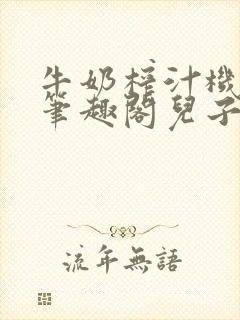 牛奶榨汁機
筆趣閣兒子
流年無語